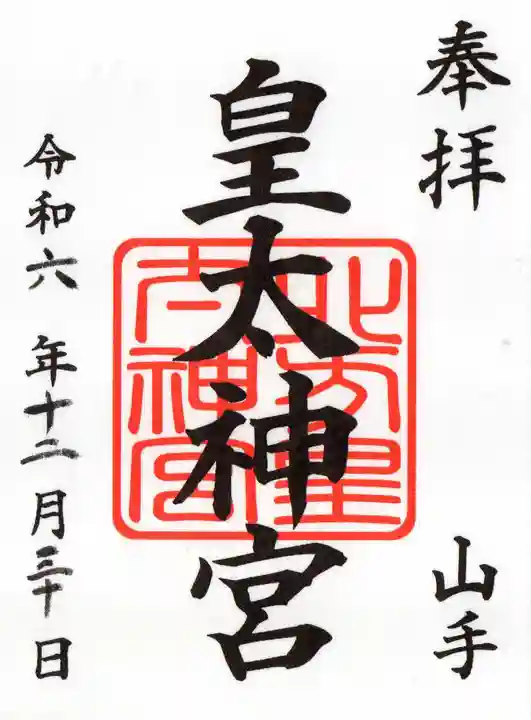 奉拝
山手
皇太神宮
令和六年十二月三十日